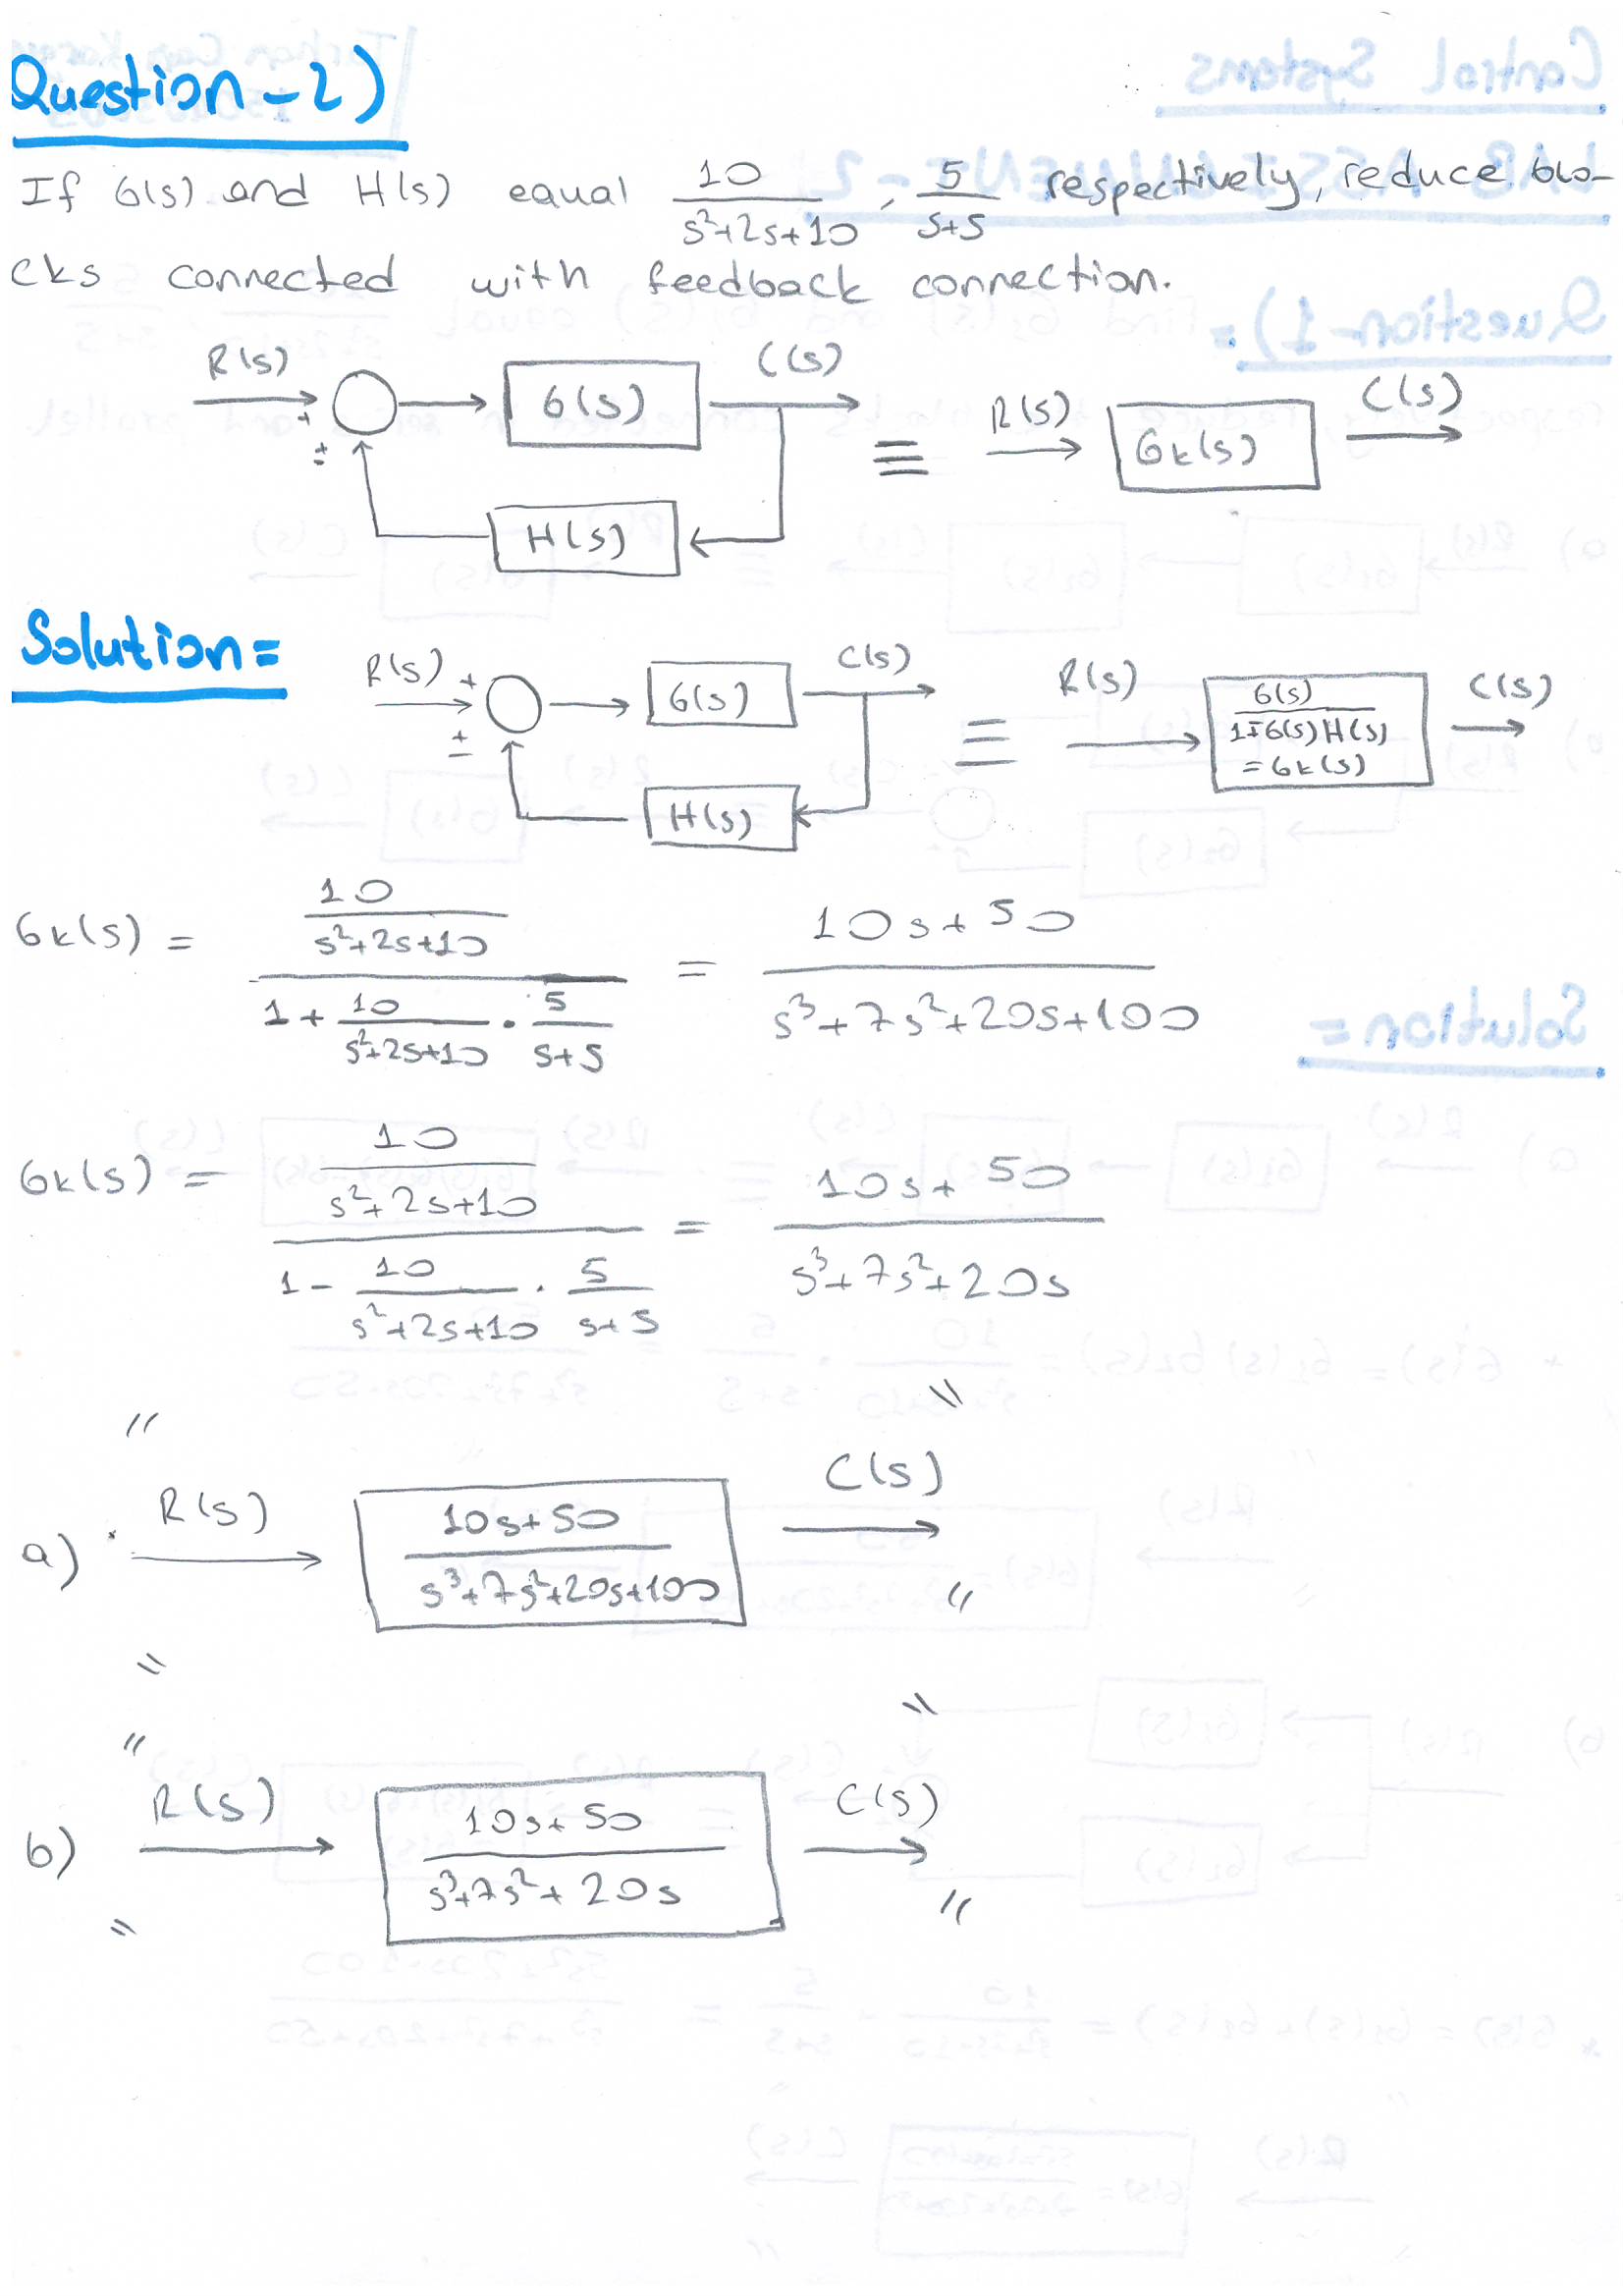 Question-2)
If G(s) and H(s) equal 10/(s²+2s+10), 5/(s+5) respectively, reduce blo-
cks connected with feedback connection.
R(s) + ± G(s) C(s) ≡ R(s) Gk(s) C(s)
H(s)
Solution=
R(s) + ± G(s) C(s) ≡ R(s) G(s)/(1∓G(s)H(s)) = Gk(s) C(s)
H(s)
Gk(s) = (10/(s²+2s+10))/(1+10/(s²+2s+10)·5/(s+5)) = (10s+50)/(s³+7s²+20s+100)
Gk(s) = (10/(s²+2s+10))/(1-10/(s²+2s+10)·5/(s+5)) = (10s+50)/(s³+7s²+20s)
a) R(s) (10s+50)/(s³+7s²+20s+100) C(s)
b) R(s) (10s+50)/(s³+7s²+20s) C(s)